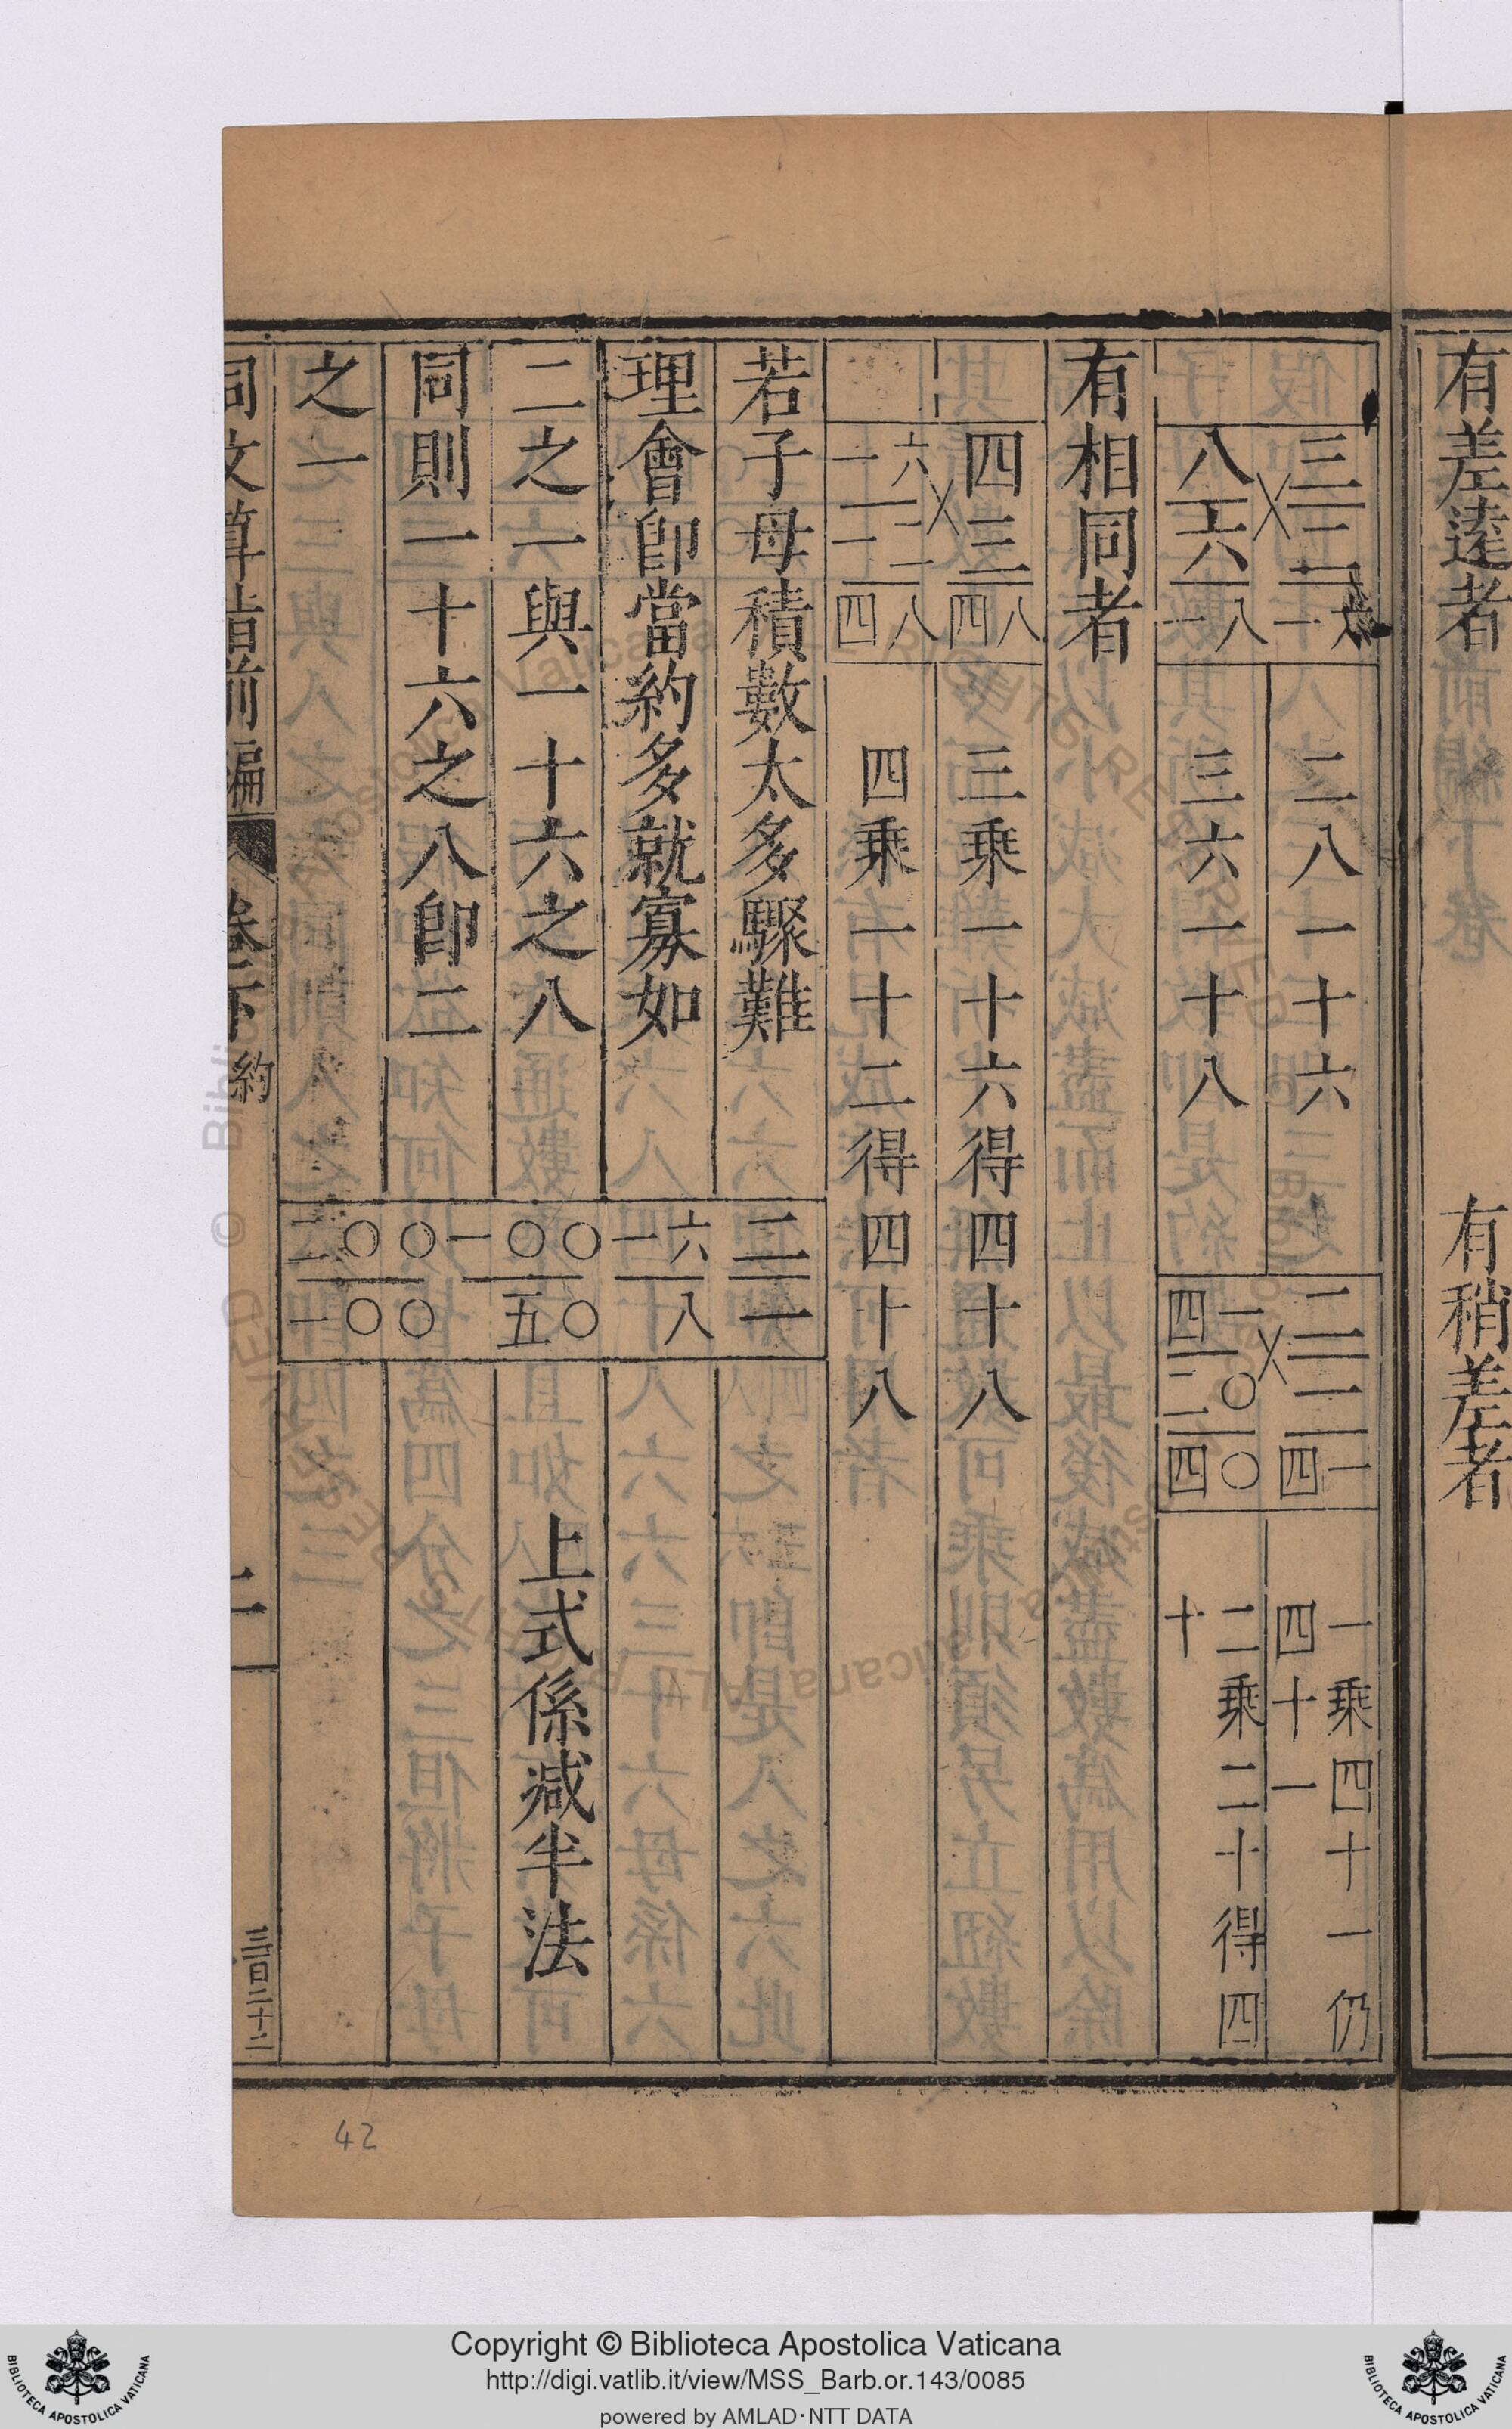 有差遠者
有稍差者
三 二 一六
八 六 一八
二八一十六
三六一十八
二 一 四一
四一 二〇 四〇
一乘四十一仍
四十一
二乘二十得四
十
有相同者
四 三 四八
一六 一二 四八
三乘一十六得四十八
四乘一十二得四十八
若子母積數太多驟難
理會卽當約多就寡如
二之一與一十六之八
同則一十六之八卽二
之一
二 一
一六 八
一〇〇 五〇
二〇〇 一〇〇
上式係減半法
同文算指前編
卷下
約
二
三百二十二
42
Copyright © Biblioteca Apostolica Vaticana
http://digi.vatlib.it/view/MSS_Barb.or.143/0085
powered by AMLAD·NTT DATA
BIBLIOTECA APOSTOLICA VATICANA
BIBLIOTECA APOSTOLICA VATICANA